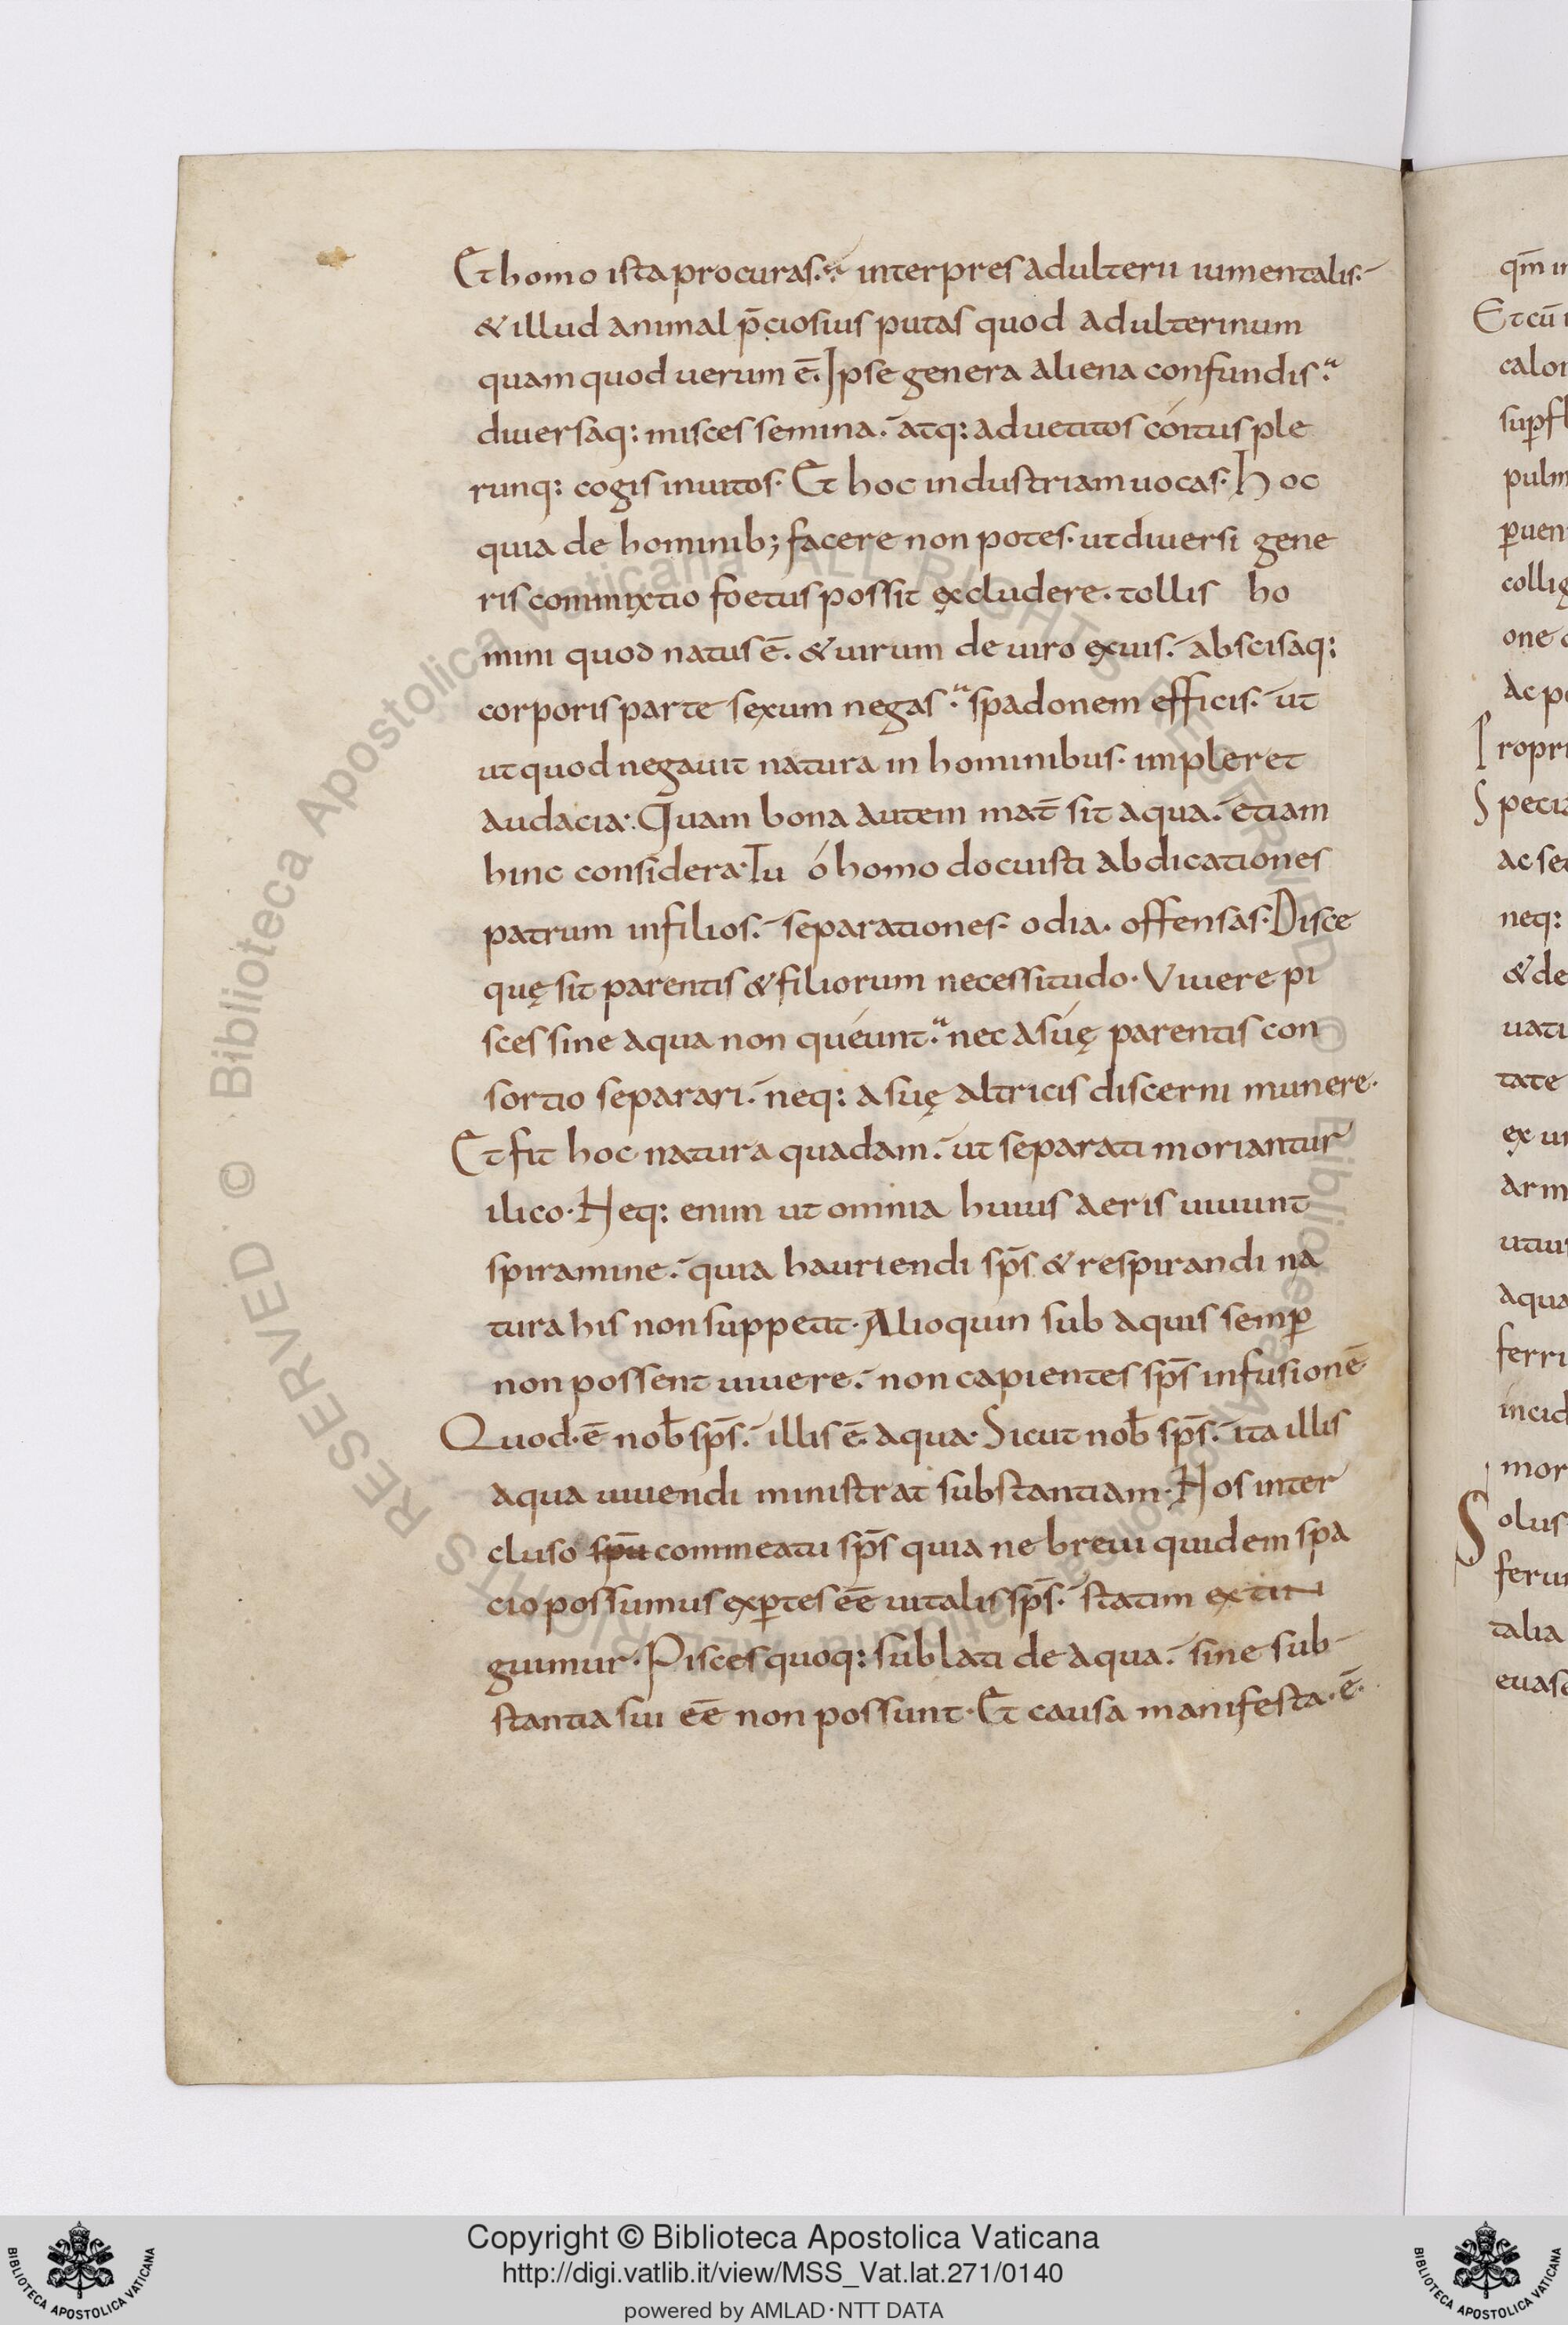 Et homo ista procuras. interpres adulterii iumentalis.
& illud animal p̄ciosius putas quod adulterinum
quam quod uerum ē. Ipse genera aliena confundis.
diuersaq: misces semina. atq: ad uetitos cóitus ple
runq: cogis inuitos. Et hoc industriam uocas. Hoc
quia de hominib; facere non potes. ut diuersi gene
ris commixtio foetus possit excludere. tollis ho
mini quod natus ē. & uirum de uiro exuis. abscisaq:
corporis parte sexum negas. spadonem efficis. ut
ut quod negauit natura in hominibus. impleret
audacia. Quam bona autem mat̄ sit aqua. etiam
hinc considera. Tu ó homo docuisti abdicationes
patrum in filios. separationes. odia. offensas. Disce
quę sit parentis & filiorum necessitudo. Viuere pi
sces sine aqua non quéunt. nec a súę parentis con
sortio separari. neq: a suę altricis discerni munere.
Et fit hoc natura quadam. ut separati moriantur
ilico. Neq: enim ut omnia huius aeris uiuunt
spiramine. quia hauriendi sp̄s & respirandi na
tura his non suppetit. Alioquin sub aquis semp̄
non possent uiuere. non capientes sp̄s infusionē
Quod. ē nob̄ sp̄s. illis ē. aqua. Sicut nob̄ sp̄s. ita illis
aqua uiuendi ministrat substantiam. Nos inter
cluso spū commeatu sp̄s quia ne breui quidem spa
cio possumus exp̄tes eē uitalis sp̄s. statim extin
guimur. Pisces quoq: sublati de aqua. sine sub
stantia sui eē non possunt. Et causa manifesta. ē.
qm̄ in
Et cū
calor
sup̄fl
pulm
p̄uen
collig
one
ac p
Propri
Specia
ac se
neq:
& de
uati
tate
ex u
arm
utiu
aqua
ferri
incid
mor
Solus
feru
talia
euas
© Biblioteca Apostolica Vaticana ALL RIGHTS RESERVED
© Biblioteca Apostolica Vaticana ALL RIGHTS RESERVED
Copyright © Biblioteca Apostolica Vaticana
http://digi.vatlib.it/view/MSS_Vat.lat.271/0140
powered by AMLAD·NTT DATA
BIBLIOTECA APOSTOLICA VATICANA
BIBLIOTECA APOSTOLICA VATICANA